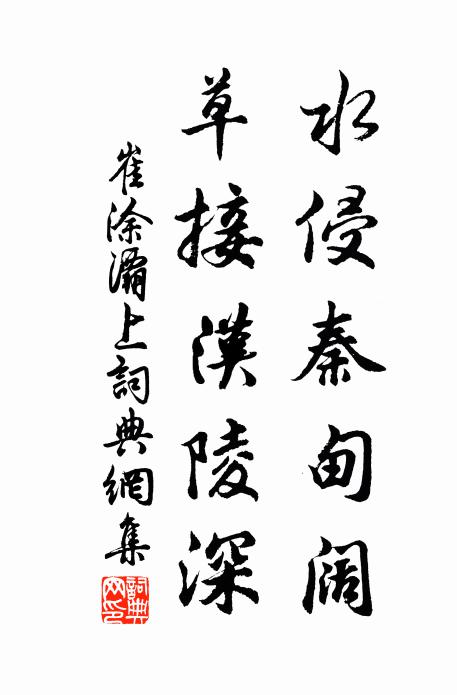 水侵秦甸阔
草接漢陵深
崔涂灞上詞典網集
詞典网印